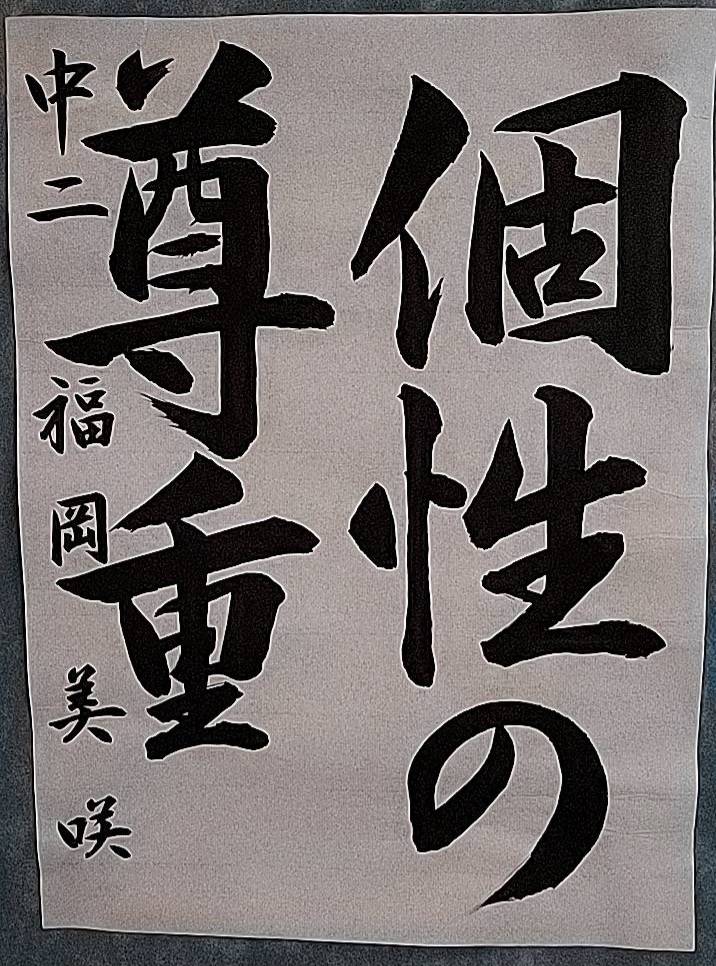 個性の
尊重
中二 福岡 美咲